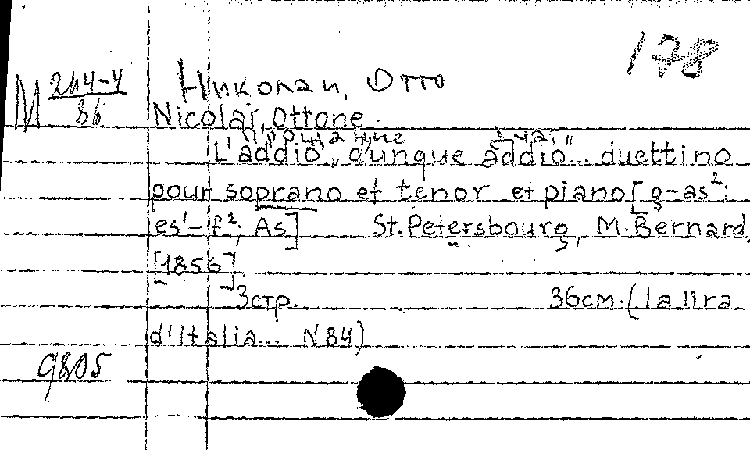 178
М 244-4/86
Николаи, Отто
Nicolai, Ottone.
L'addio „dunque addio".. duettino
pour soprano et tenor et piano [g-as²;
es'-f²; As] St. Petersbourg, M. Bernard,
[1856].
3стр. 36см. (la lira
d'Italia... N 84)
9805